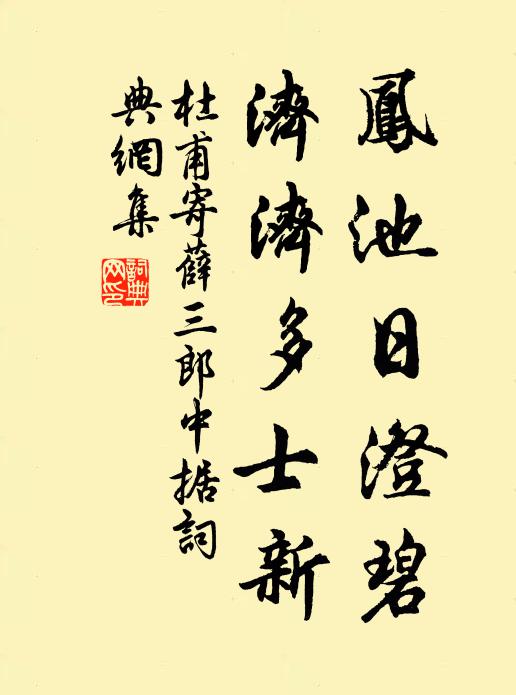 鳳池日澄碧
濟濟多士新
杜甫寄薛三郎中据詞
典網集
詞典
网印